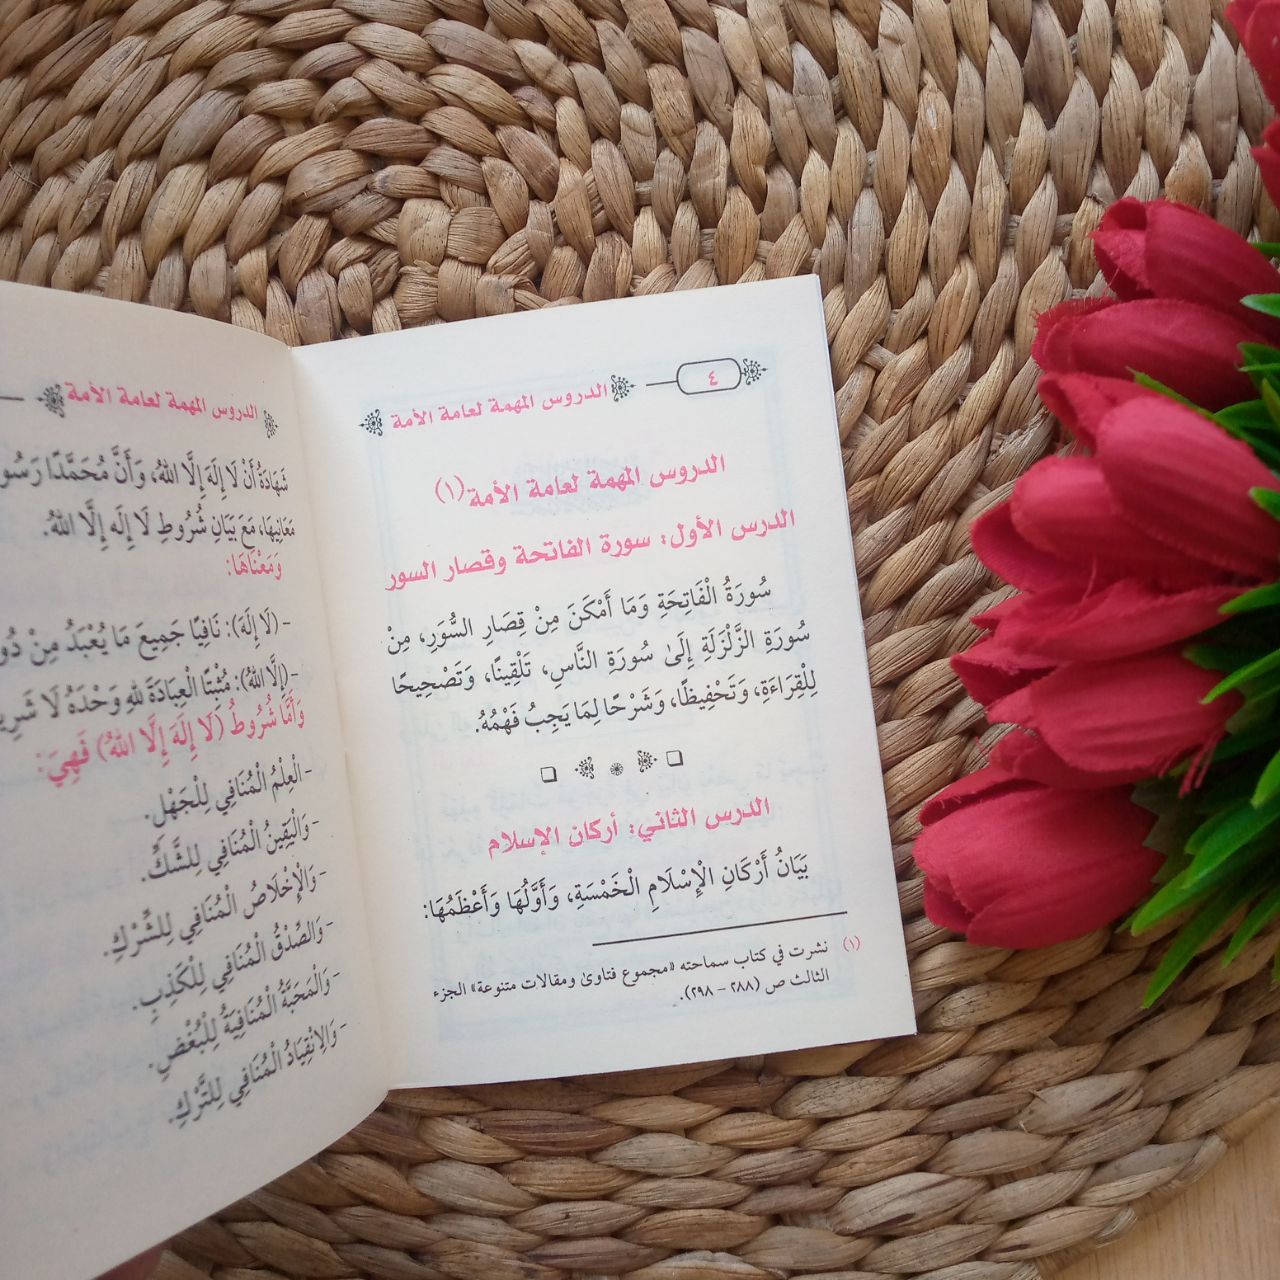 ٤
الدروس المهمة لعامة الأمة
الدروس المهمة لعامة الأمة(١)
الدرس الأول: سورة الفاتحة وقصار السور
سُورَةُ الْفَاتِحَةِ وَمَا أَمْكَنَ مِنْ قِصَارِ السُّوَرِ، مِنْ
سُورَةِ الزَّلْزَلَةِ إِلَىٰ سُورَةِ النَّاسِ، تَلْقِينًا، وَتَصْحِيحًا
لِلْقِرَاءَةِ، وَتَحْفِيظًا، وَشَرْحًا لِمَا يَجِبُ فَهْمُهُ.
الدرس الثاني: أركان الإسلام
بَيَانُ أَرْكَانِ الْإِسْلَامِ الْخَمْسَةِ، وَأَوَّلُهَا وَأَعْظَمُهَا:
(١) نشرت في كتاب سماحته «مجموع فتاوىٰ ومقالات متنوعة» الجزء
الثالث ص (٢٨٨ - ٢٩٨).
الدروس المهمة لعامة الأمة
شَهَادَةُ أَنْ لَا إِلَهَ إِلَّا اللهُ، وَأَنَّ مُحَمَّدًا
مَعَانِيهَا، مَعَ بَيَانِ شُرُوطِ لَا إِلَه إِلَّا اللهُ.
وَمَعْنَاهَا:
- (لَا إِلَهَ): نَافِيًا جَمِيعَ مَا يُعْبَدُ مِنْ
- (إِلَّا اللهُ): مُثْبِتًا الْعِبَادَةَ لِلهِ وَحْدَهُ لَا
وَأَمَّا شُرُوطُ (لَا إِلَهَ إِلَّا اللهُ) فَهِيَ:
- الْعِلْمُ الْمُنَافِي لِلْجَهْلِ.
- وَالْيَقِينُ الْمُنَافِي لِلشَّكِّ.
- وَالْإِخْلَاصُ الْمُنَافِي لِلشِّرْكِ.
- وَالصِّدْقُ الْمُنَافِي لِلْكَذِبِ.
- وَالْمَحَبَّةُ الْمُنَافِيَةُ لِلْبُغْضِ.
- وَالِانْقِيَادُ الْمُنَافِي لِلتَّرْكِ.